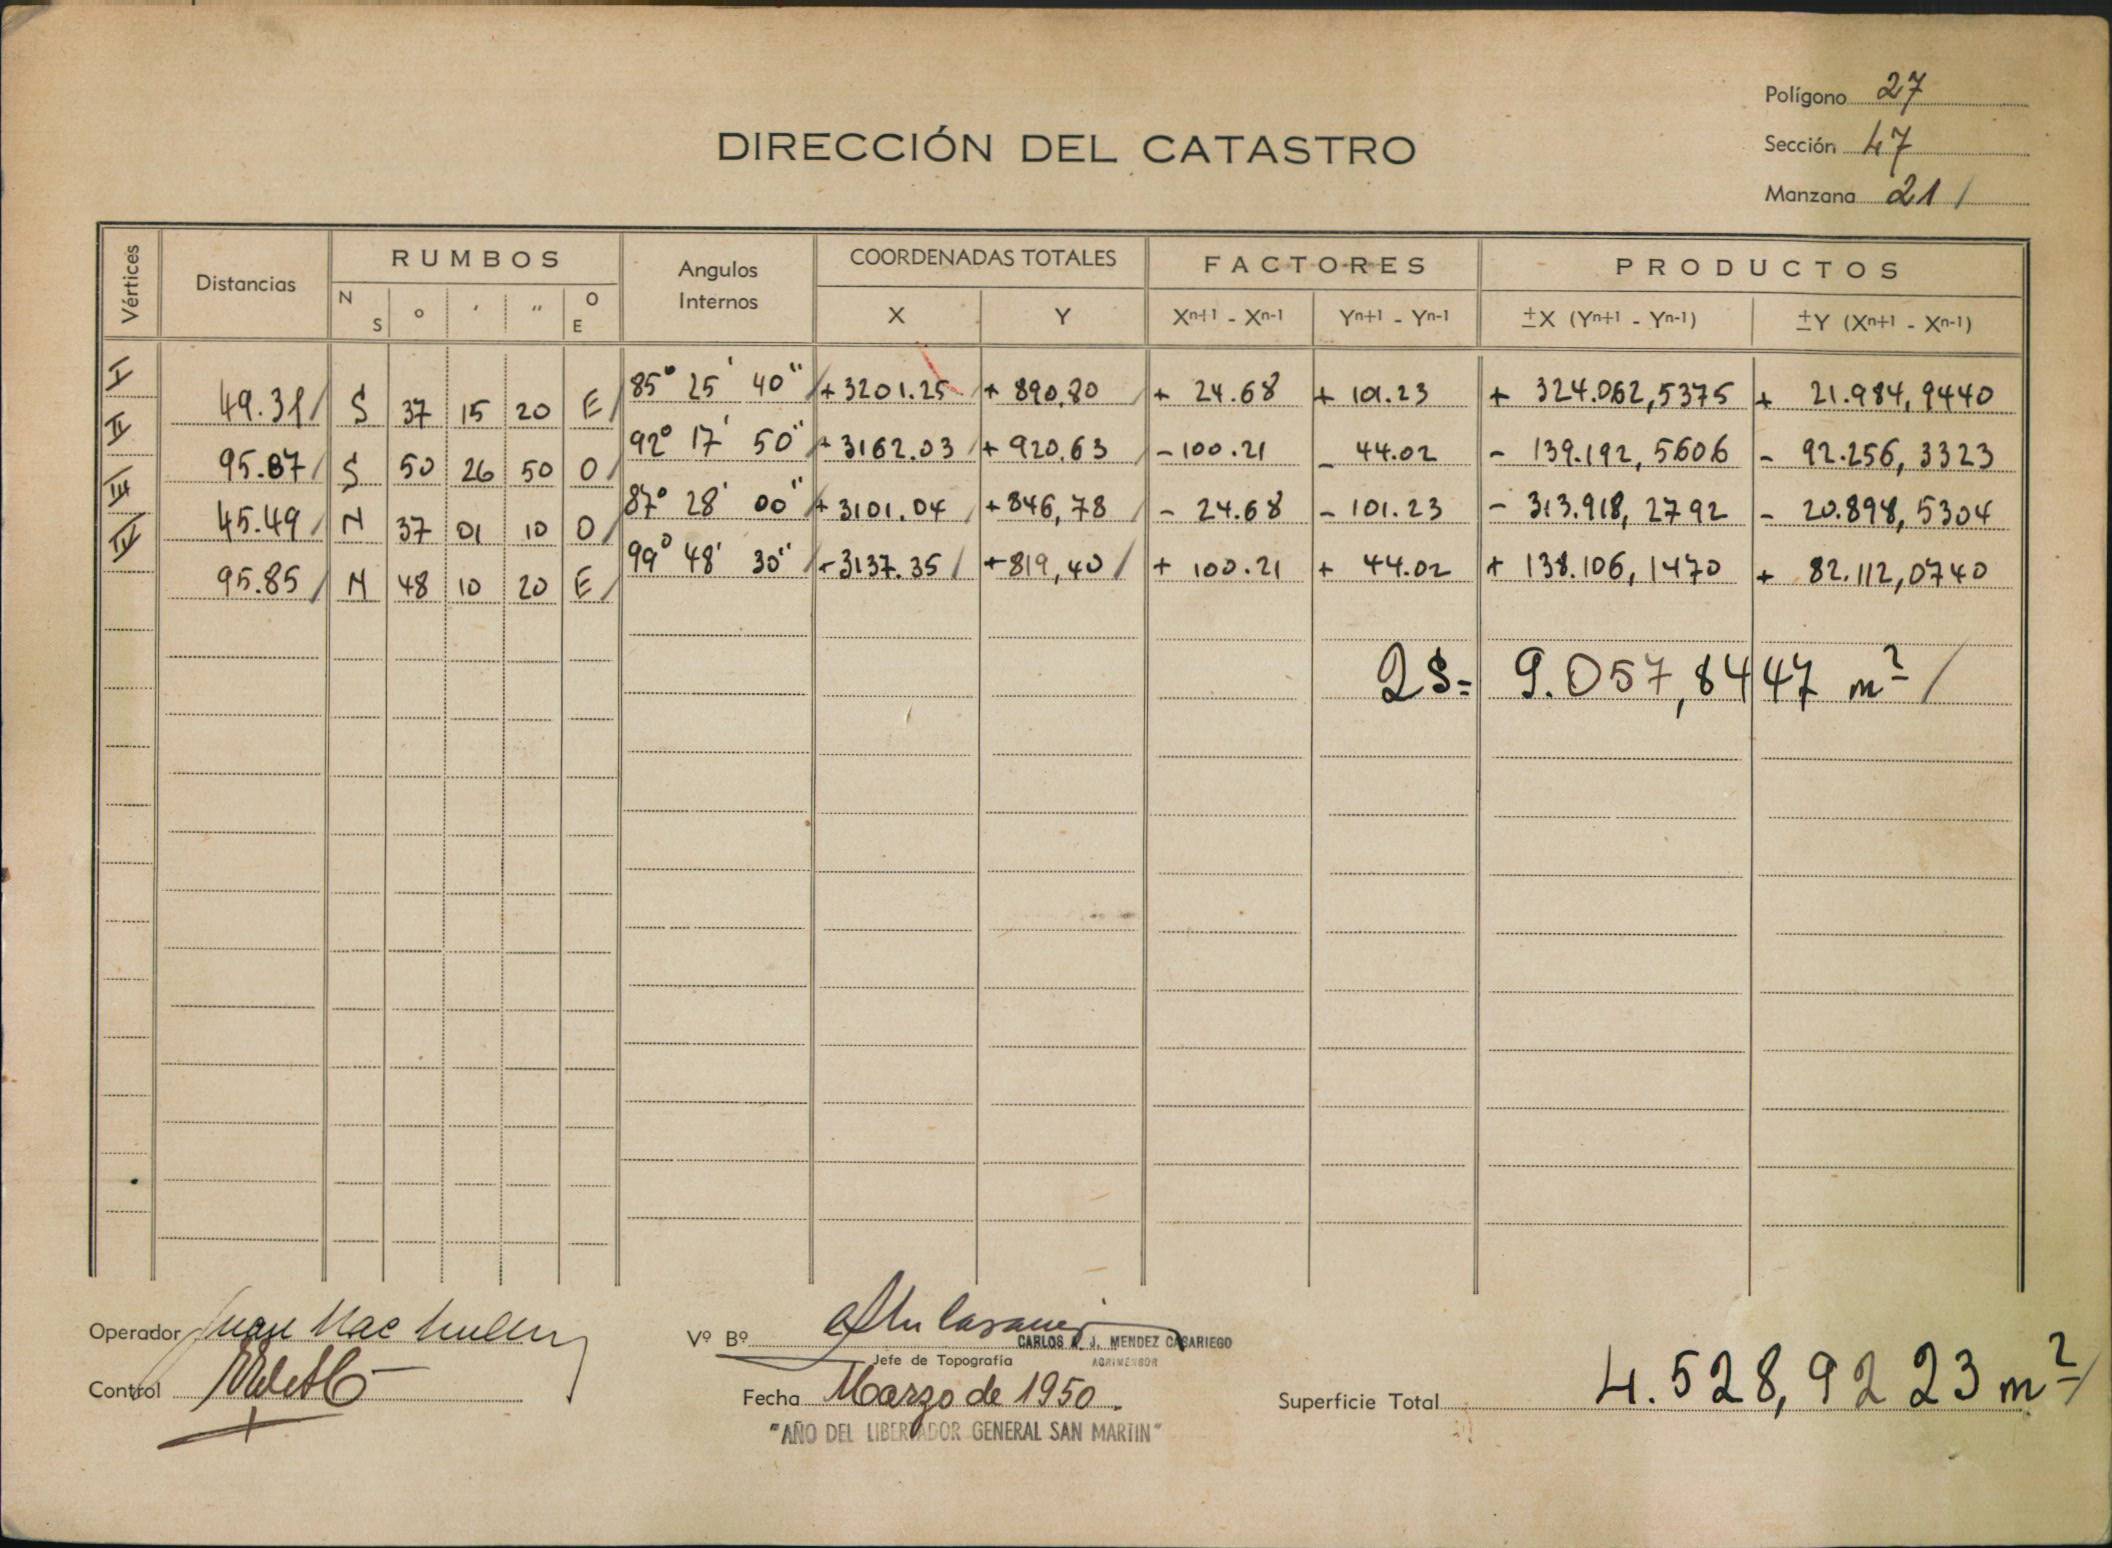 Polígono 27
Sección 47
Manzana 21 /
DIRECCIÓN DEL CATASTRO
Vértices Distancias RUMBOS Angulos Internos COORDENADAS TOTALES FACTORES PRODUCTOS
N S ° ' " O E X Y Xn+1 - Xn-1 Yn+1 - Yn-1 ±X (Yn+1 - Yn-1) ±Y (Xn+1 - Xn-1)
I 49.31/ S 37 15 20 E/ 85° 25' 40"/ +3201.25/ + 890,80 / + 24.68 + 101.23 + 324.062,5375 + 21.984,9440
II 95.87/ S 50 26 50 O/ 92° 17' 50"/ +3162.03/ + 920.63 / -100.21 - 44.02 - 139.192,5606 - 92.256,3323
III 45.49/ N 37 01 10 O/ 87° 28' 00"/ +3101.04/ +846,78 / - 24.68 - 101.23 - 313.918,2792 - 20.898,5304
IV 95.85/ N 48 10 20 E/ 99° 48' 30"/ +3137.35/ +819,40/ + 100.21 + 44.02 + 138.106,1470 + 82.112,0740
2S= 9.057,8447 m²/
Operador Juan Mac
Vº Bº
CARLOS A. J. MENDEZ CASARIEGO
Jefe de Topografía AGRIMENSOR
Control
Fecha Marzo de 1950.
Superficie Total 4.528,9223 m²/
"AÑO DEL LIBERTADOR GENERAL SAN MARTIN"